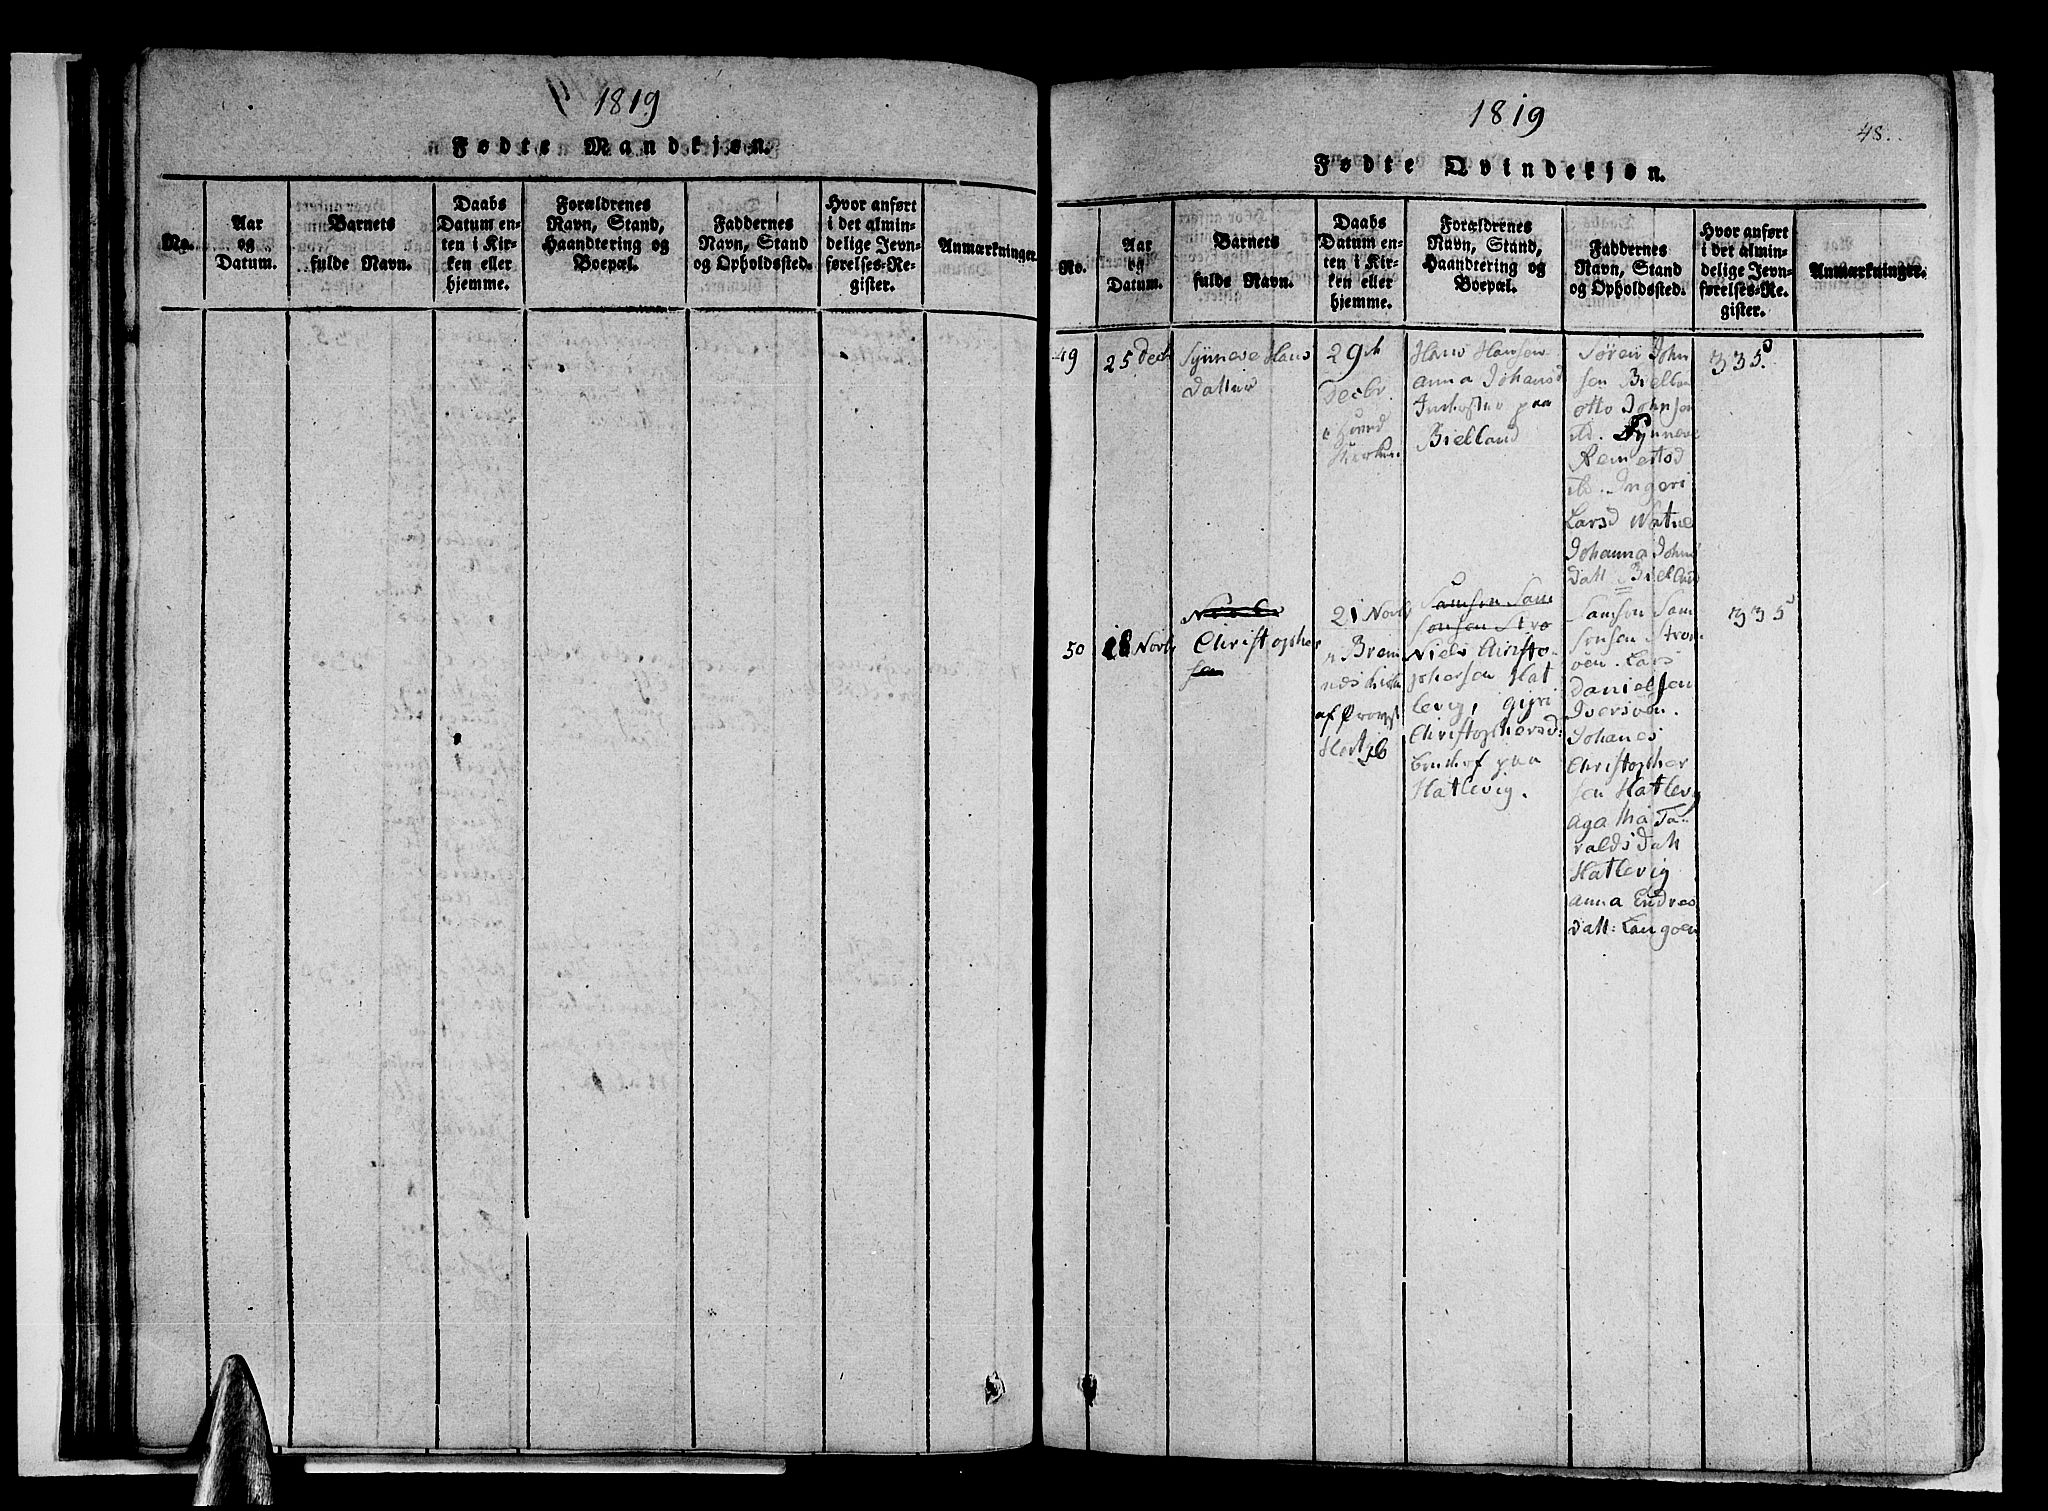 1819
Fødte Mandkjøn.
No.
Aar
og
Datum.
Barnets
fulde Navn.
Daabs
Datum en-
ten i Kir-
ken eller
hjemme.
Forældrenes
Navn, Stand,
Haandtering og
Boepæl.
Faddernes
Navn, Stand
og Opholdssted.
Hvor anført
i det almin-
delige Jevn-
førelses-Re-
gister.
Anmærkninger.
1819
48.
Fødte Qvindekjøn.
No.
Aar
og
Datum.
Barnets
fulde Navn.
Daabs
Datum en-
ten i Kir-
ken eller
hjemme.
Forældrenes
Navn, Stand,
Haandtering og
Boepæl.
Faddernes
Navn, Stand
og Opholdssted.
Hvor anført
i det almin-
delige Jevn-
førelses-Re-
gister.
Anmærkninger.
49
25 Decb
Synneve Hans
datter
29de
Decbr.
Hans Hansen
Anna Johansd
Inderster paa
Bielland
Søren John
sen Bielland
Otto Johnsen
ib. Synneve
Remestad
ib. Ingeri
Larsd Watne
Johanna Johns
datt Bielland
335
50
18 Novb
Christopher
sen
21 Novb
i Brem
nes kirke
af Provst
Hertzb
Samson Sam
sonsen Stro
Niels Christo-
phersen Hat
levig, Gyri
Christophersd:
Brugsf paa
Hatlevig.
Samson Sam
sonsen Strom
øen. Lars
Danielsen
Iversøen.
Johanes
Christopher
sen Hatlevig
Agatha Ta-
raldsdatt
Hatlevig
Anna Endres
datt: Langøen
335